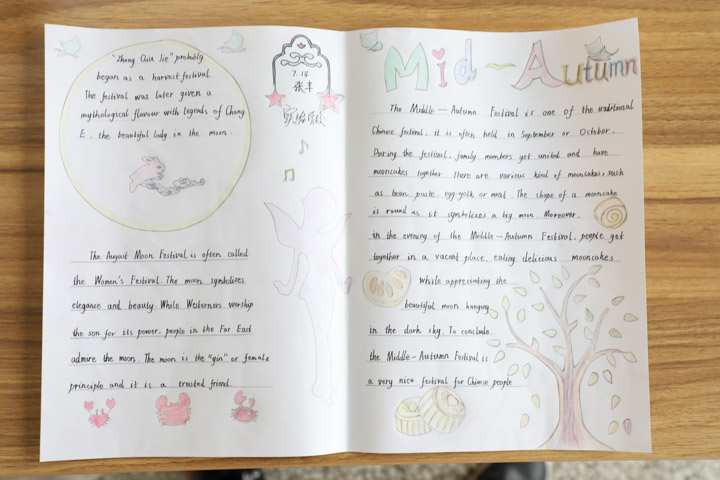 "Zhong Qiu Jie" probably
began as a harvest festival.
The festival was later given a
mythological flavour with legends of Chang
E, the beautiful lady in the moon.
The August Moon Festival is often called
the Women's Festival. The moon symbolizes
elegance and beauty. While Westerners worship
the son for its power, people in the Far East
admire the moon. The moon is the "yin" or female
principle and it is a trusted friend.
7.14
张丰
实验学校
Mid-Autumn
The Middle-Autumn Festival is one of the traditional
Chinese festival, it is often held in September or October.
During the festival, family members get united and have
mooncakes together. There are various kind of mooncakes, such
as bean paste, egg-yolk or meat. The shape of a mooncake
is round as it symbolizes a big moon. Moreover,
in the evening of the Middle-Autumn Festival, people get
together in a vacant place, eating delicious mooncakes
while appreciating the
beautiful moon hanging
in the dark sky. To conclude,
the Middle-Autumn Festival is
a very nice festival for Chinese people.